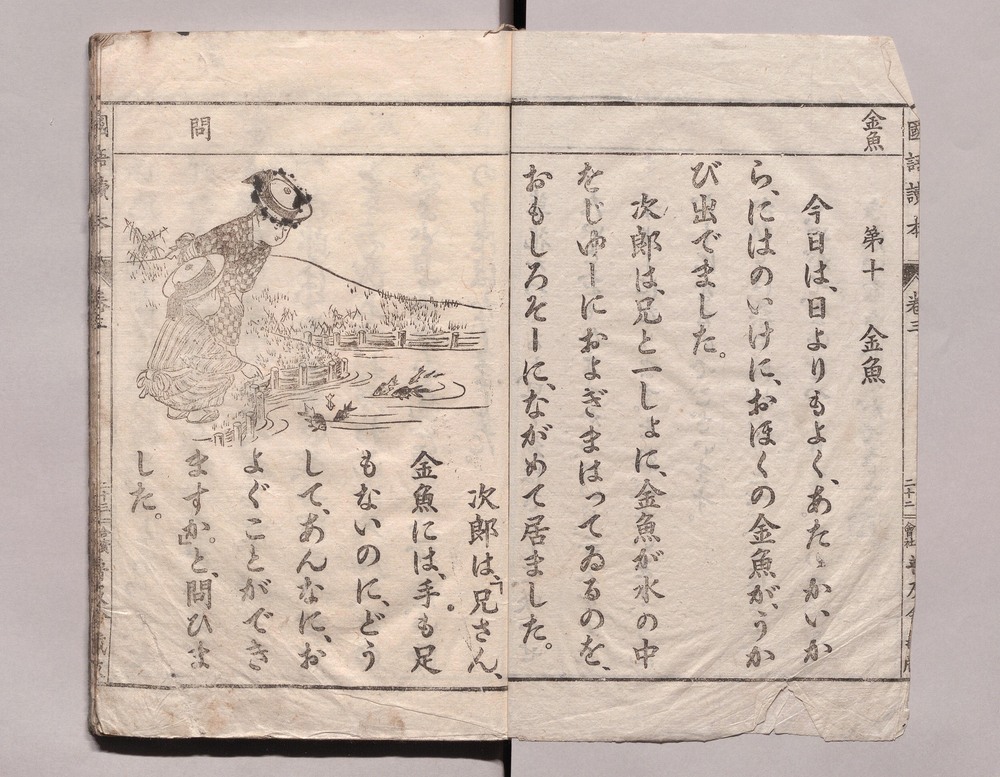 金魚
第十　金魚
今日は、日よりもよく、あたゝかいか
ら、にはのいけに、おほくの金魚が、うか
び出でました。
次郎は、兄と一しょに、金魚が水の中
をじゆーにおよぎまはってゐるのを、
おもしろそーに、ながめて居ました。
問
次郎は、「兄さん、
金魚には、手も足
もないのに、どう
して、あんなに、お
よぐことができ
ますか。」と、問ひま
した。
國語讀本
卷三
二十二
會社
國語讀本
卷三
二十三